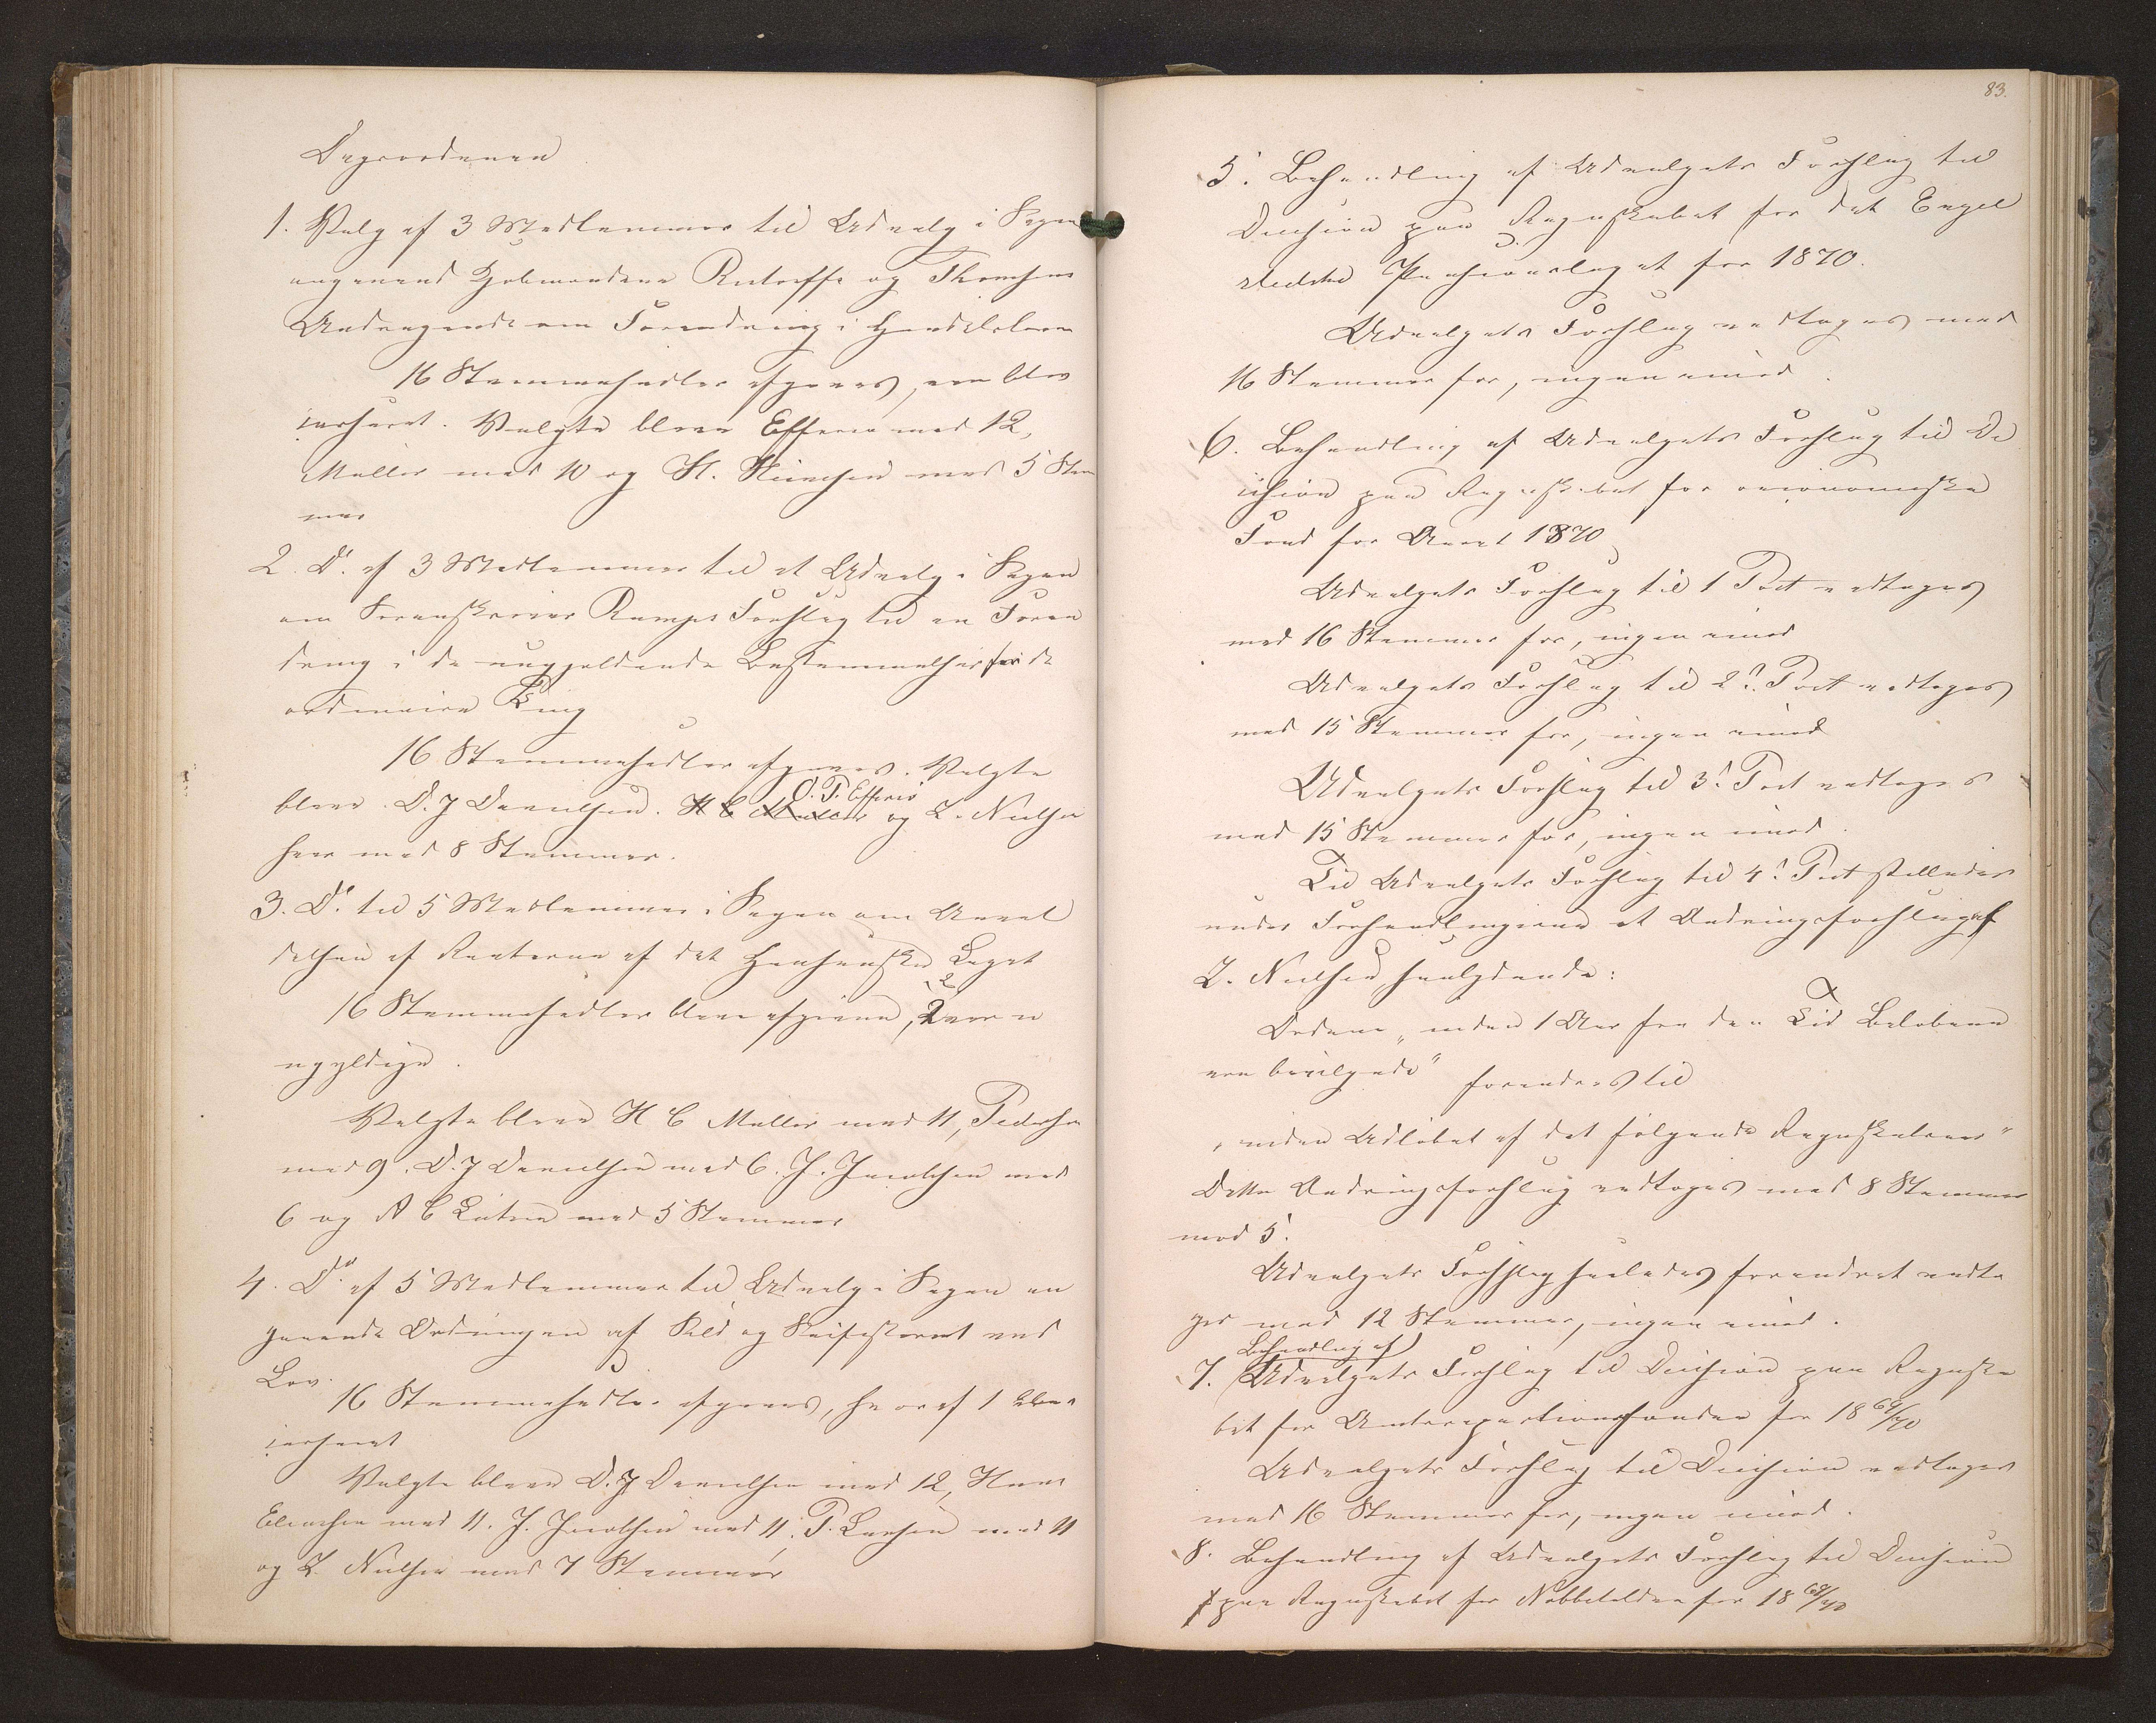 Dagsordenen
1. Valg af 3 Medlemmer til Udvalg i Sagen
angaaende Kjøbmændene Restorffs og Thomsens
Andragende om Forandring i Handelsloven
16 Stemmesedler afgaves, een blev
casseret. Valgte bleve Effersøe med 12,
Müller med 10 og H. Heinesen med 5 Stem
mer
2. Do. af 3 Medlemmer til et Udvalg i Sagen
om Sorenskriver Forslag til en Foran
dring i de nugjældende Bestemmelser for de
ordinaire Ting
16 Stemmesedler afgaves. Valgte
bleve D. J Danielsen. H C Müller O. P. Effersø og Z. Nielsen
hver med 8 Stemmer.
3. Do. til 5 Medlemmer i Sagen om Anven
delsen af Renterne af det Hansenske Legat
16 Stemmesedler bleve afgivne, 2 vare
ugyldige.
Valgte bleve H C Müller med 11, Pedersen
med 9. D. J Danielsen med 6. J. Jacobsen med
6 og A C Lützen med 5 Stemmer
4. Do. af 5 Medlemmer til Udvalg i Sagen an
gaaende Ordningen af Sild og ved
Lov.
16 Stemmesedler afgaves, hvoraf 1 blev
casseret
Valgte bleve D. J Danielsen med 12, Hans
med 11. J. Jacobsen med 11, P. Larsen med 11
og Z. Nielsen med 7 Stemmer
83.
5. Behandling af Udvalgets Forslag til
Decision paa Regnskabet for det Engel
stedske Pensionslegat for 1870.
Udvalgets Forslag vedtoges med
16 Stemmer for, ingen imod.
6. Behandling af Udvalgets Forslag til De
cision paa Regnskabet for oeconomiske
Fond for Aaret 1870
Udvalgets Forslag til 1 Post vedtoges
med 16 Stemmer for, ingen imod
Udvalgets Forslag til 2d. Post vedtoges
med 15 Stemmer for, ingen imod
Udvalgets Forslag til 3d. Post vedtoges
med 15 Stemmer for, ingen imod.
Til Udvalgets Forslag til 4d. Post stilledes
under Forhandlingerne et Ændringsforslag af
Z. Nielsen saalydende:
Ordene „inden 1 Aar fra den Tid Beløbene
ere bevilgede" forandres til
„inden Udløbet af det følgende Regnskabsaar"
Dette Ændringsforslag vedtoges med 8 Stemmer
mod 5.
Udvalgets Forslag saaledes forandret vedto
ges med 12 Stemmer, ingen imod.
Behandling af
7. Udvalgets Forslag til Decision paa Regnska
bet for Amtsrepartitionsfonden for 18 69/70
Udvalgets Forslag til Decision vedtoges
med 16 Stemmer for, ingen imod.
8. Behandling af Udvalgets Forslag til Decision
paa Regnskabet for Næbbetolden for 18 69/70